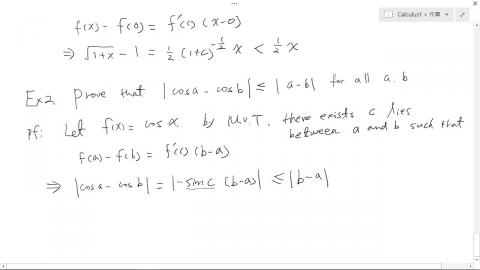 Calculus1 > 作業
f(x) - f(0) = f'(c) (x-0)
⇒ √(1+x) - 1 = 1/2 (1+c)^(-1/2) x < 1/2 x
Ex2. Prove that |cos a - cos b| ≤ |a-b| for all a. b
pf: Let f(x) = cos x by M.V.T. there exists c lies
between a and b such that
f(a) - f(b) = f'(c) (b-a)
⇒ |cos a - cos b| = |-sin c (b-a)| ≤ |b-a|